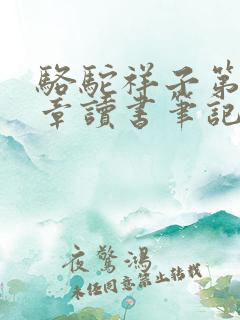 駱駝祥子第
章讀書筆記
夜驚鴻
未經同意禁止轉載